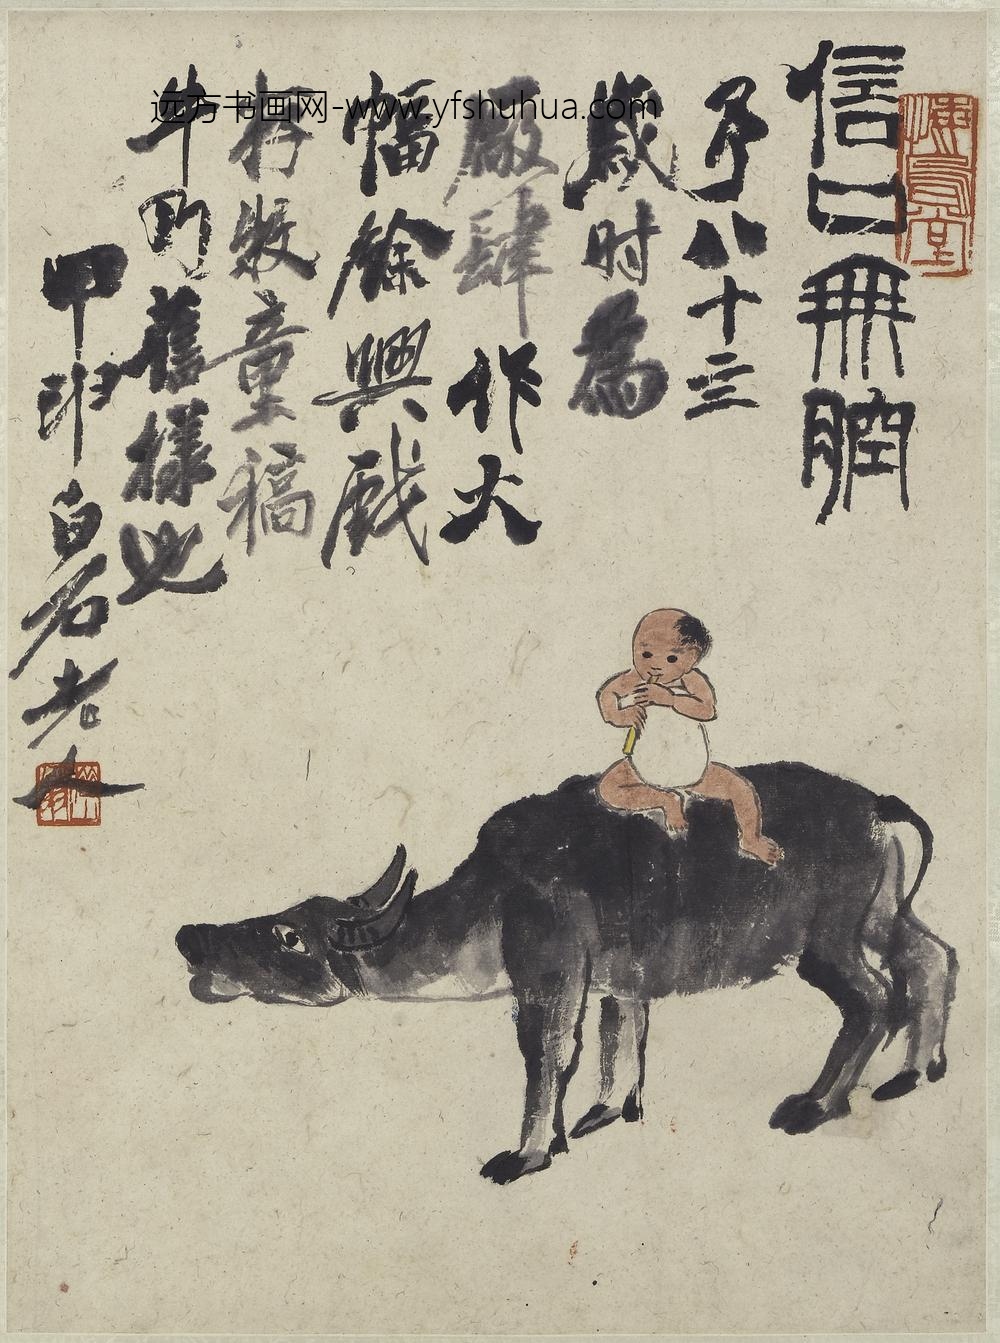 信口無腔
予八十三
歲时為
廠肆作大
幅餘興戲
牧童稿
牛舊樣也
甲申白石老人
悔烏堂
远方书画网-www.yfshuhua.com